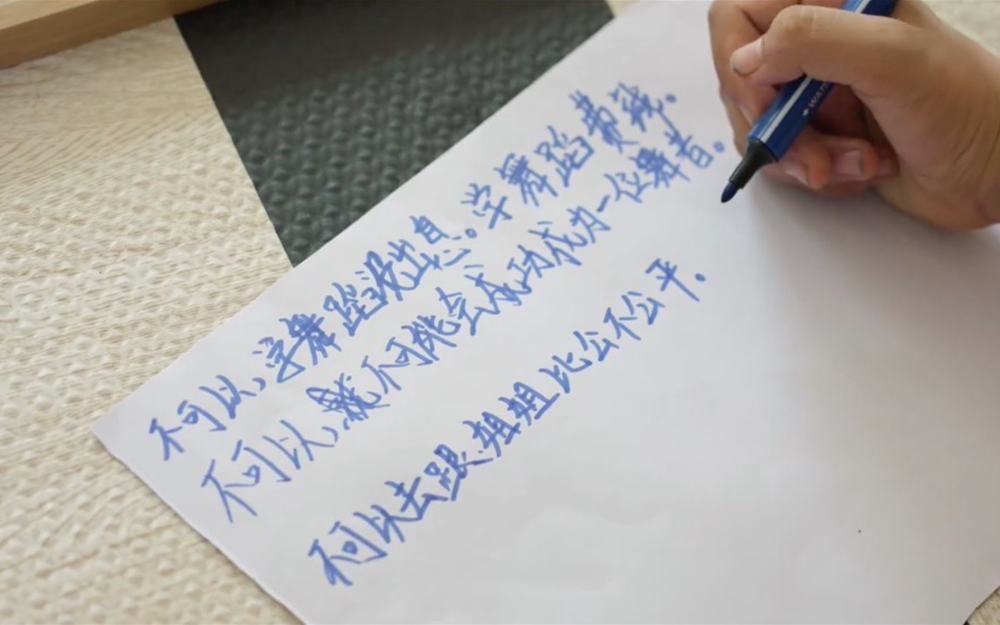 不可以,学舞蹈没出息。学舞蹈费钱.
不可以,就不可能会成功成为一位舞者。
不可以去跟姐姐比公不公平.